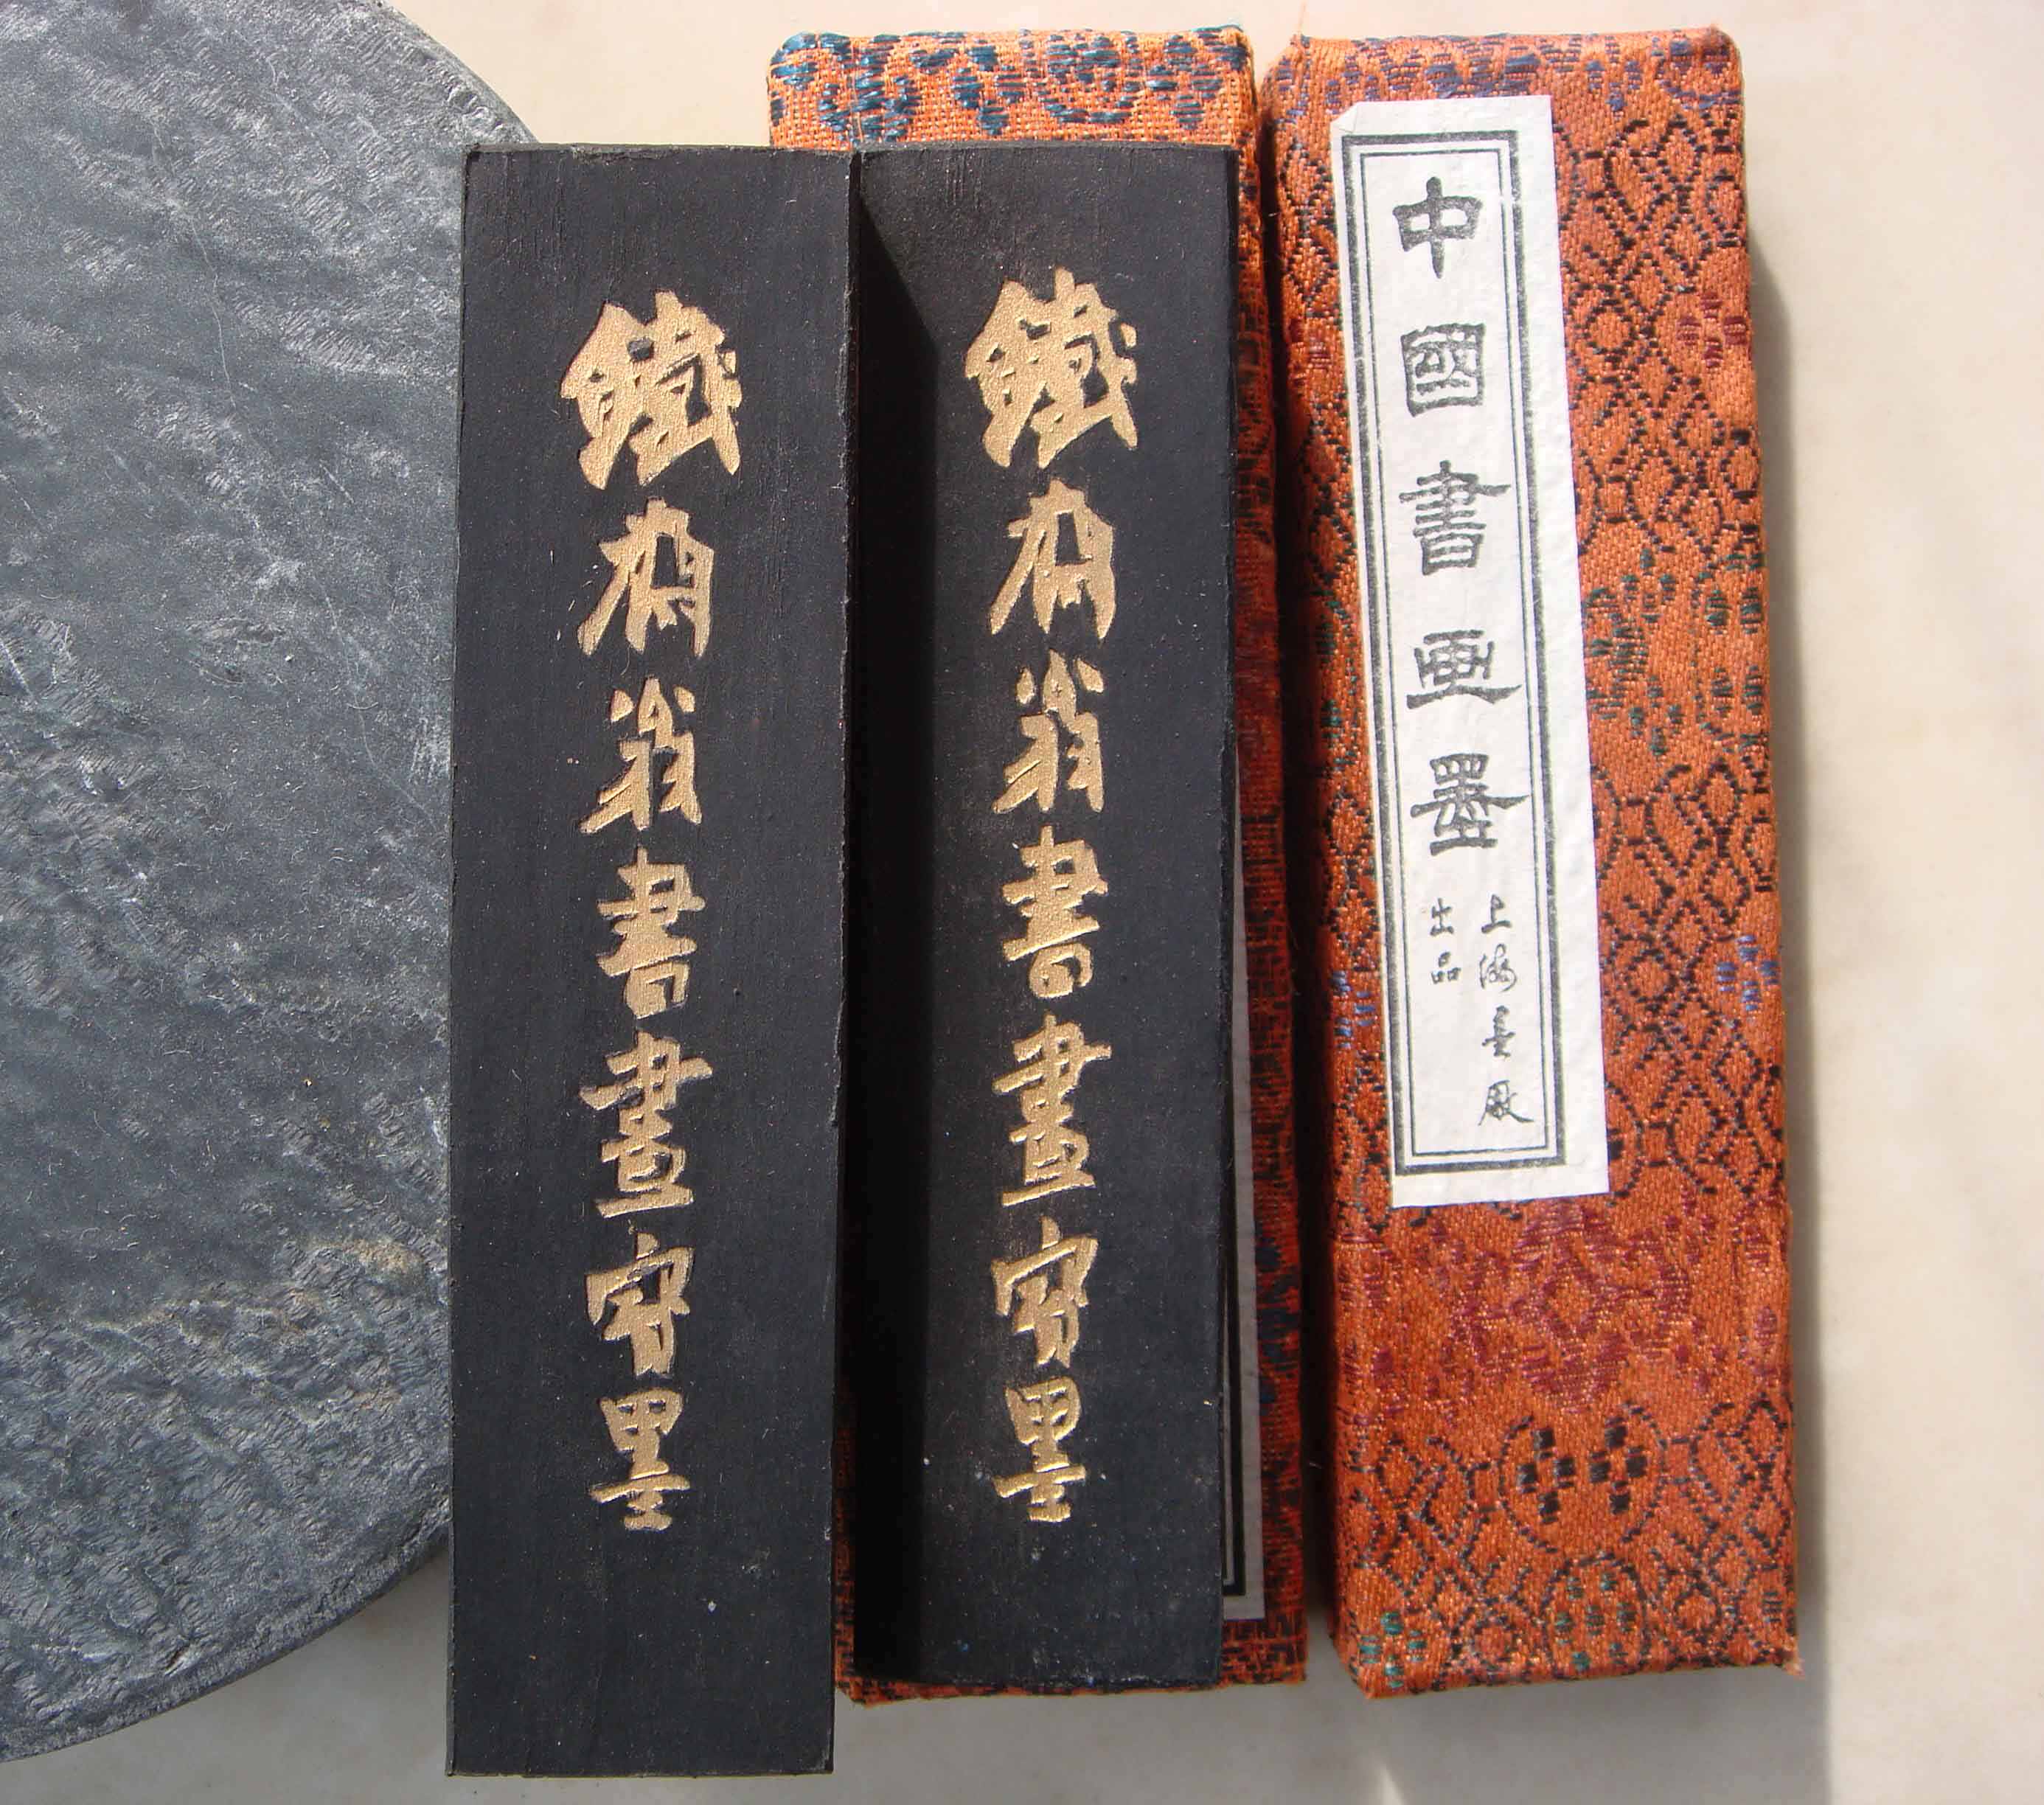 鐵齋翁書畫寶墨
鐵齋翁書畫寶墨
中國書画墨
上海墨厰
出品